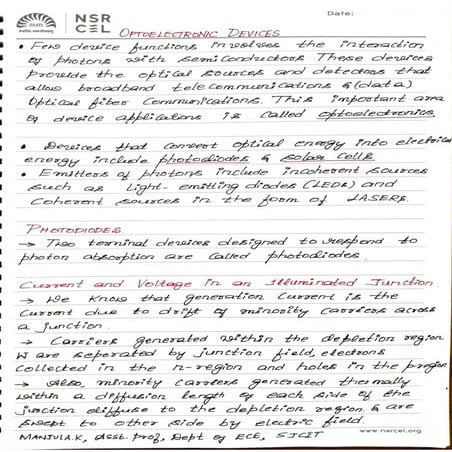 NSR
CEL
Date:
OPTOELECTRONIC DEVICES
• Few device functions involves the interaction
of photons with semiconductors These devices
provide the optical sources and detectors that
allow broadband telecommunications & (data)
Optical fiber Communications. This important area
of device applications is called optoelectronics.
• Devices that convert optical energy into electrical
energy include photodiodes & solar cells
• Emitters of photons include incoherent sources
such as Light-emitting diodes (LEDs) and
Coherent sources in the form of LASERs.
PHOTODIODES.
→ Two terminal devices designed to respond to
photon absorption are called photodiodes.
Current and Voltage in an Illuminated Junction.
→ We know that generation current is the
Current due to drift of minority carriers across
a junction.
→ Carriers generated within the depletion region
W are seperated by junction field, electrons
collected in the n-region and holes in the p region
→ Also, minority carriers generated thermally
within a diffusion length of each side of the
junction diffuse to the depletion region & are
swept to other side by electric field.
www.nsrcel.org
MANJULA.K, Asst. Prof, Dept of ECE, SJCIT